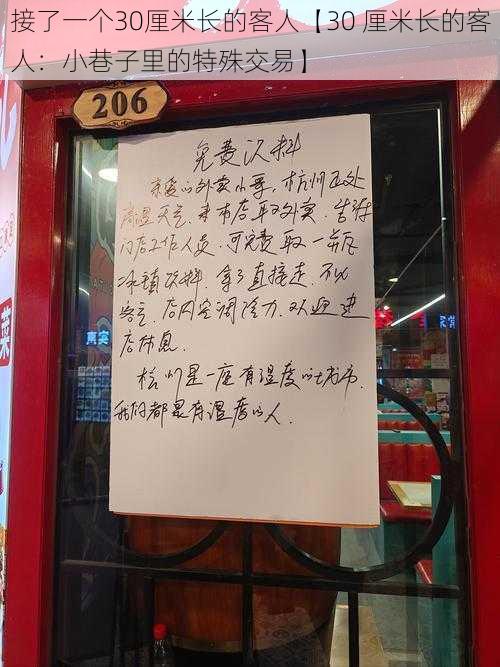 接了一个30厘米长的客人【30 厘米长的客
人：小巷子里的特殊交易】
206
免费饮料
亲爱的外卖小哥，杭州正处
高温天气，来本店取外卖，告诉
门店工作人员，可免费取一瓶
冰镇饮料，拿了直接走，不必
客气，店内空调给力，欢迎进
店休息.
杭州是一座有温度的城市，
我们都是有温度的人.
菜